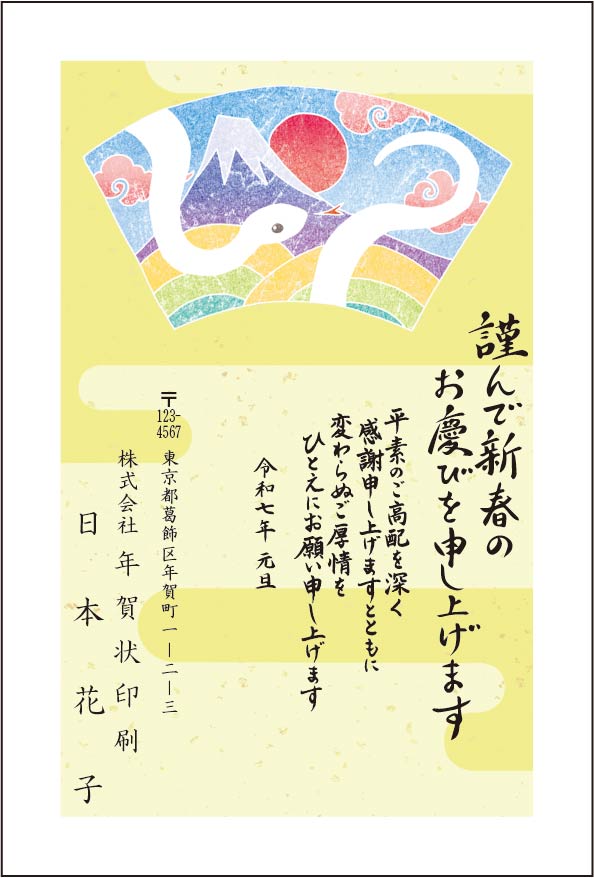 謹んで新春の
お慶びを申し上げます
平素のご高配を深く
感謝申し上げますとともに
変わらぬご厚情を
ひとえにお願い申し上げます
令和七年 元旦
〒123-4567 東京都葛飾区年賀町一ー二ー三
株式会社年賀状印刷
日本花子